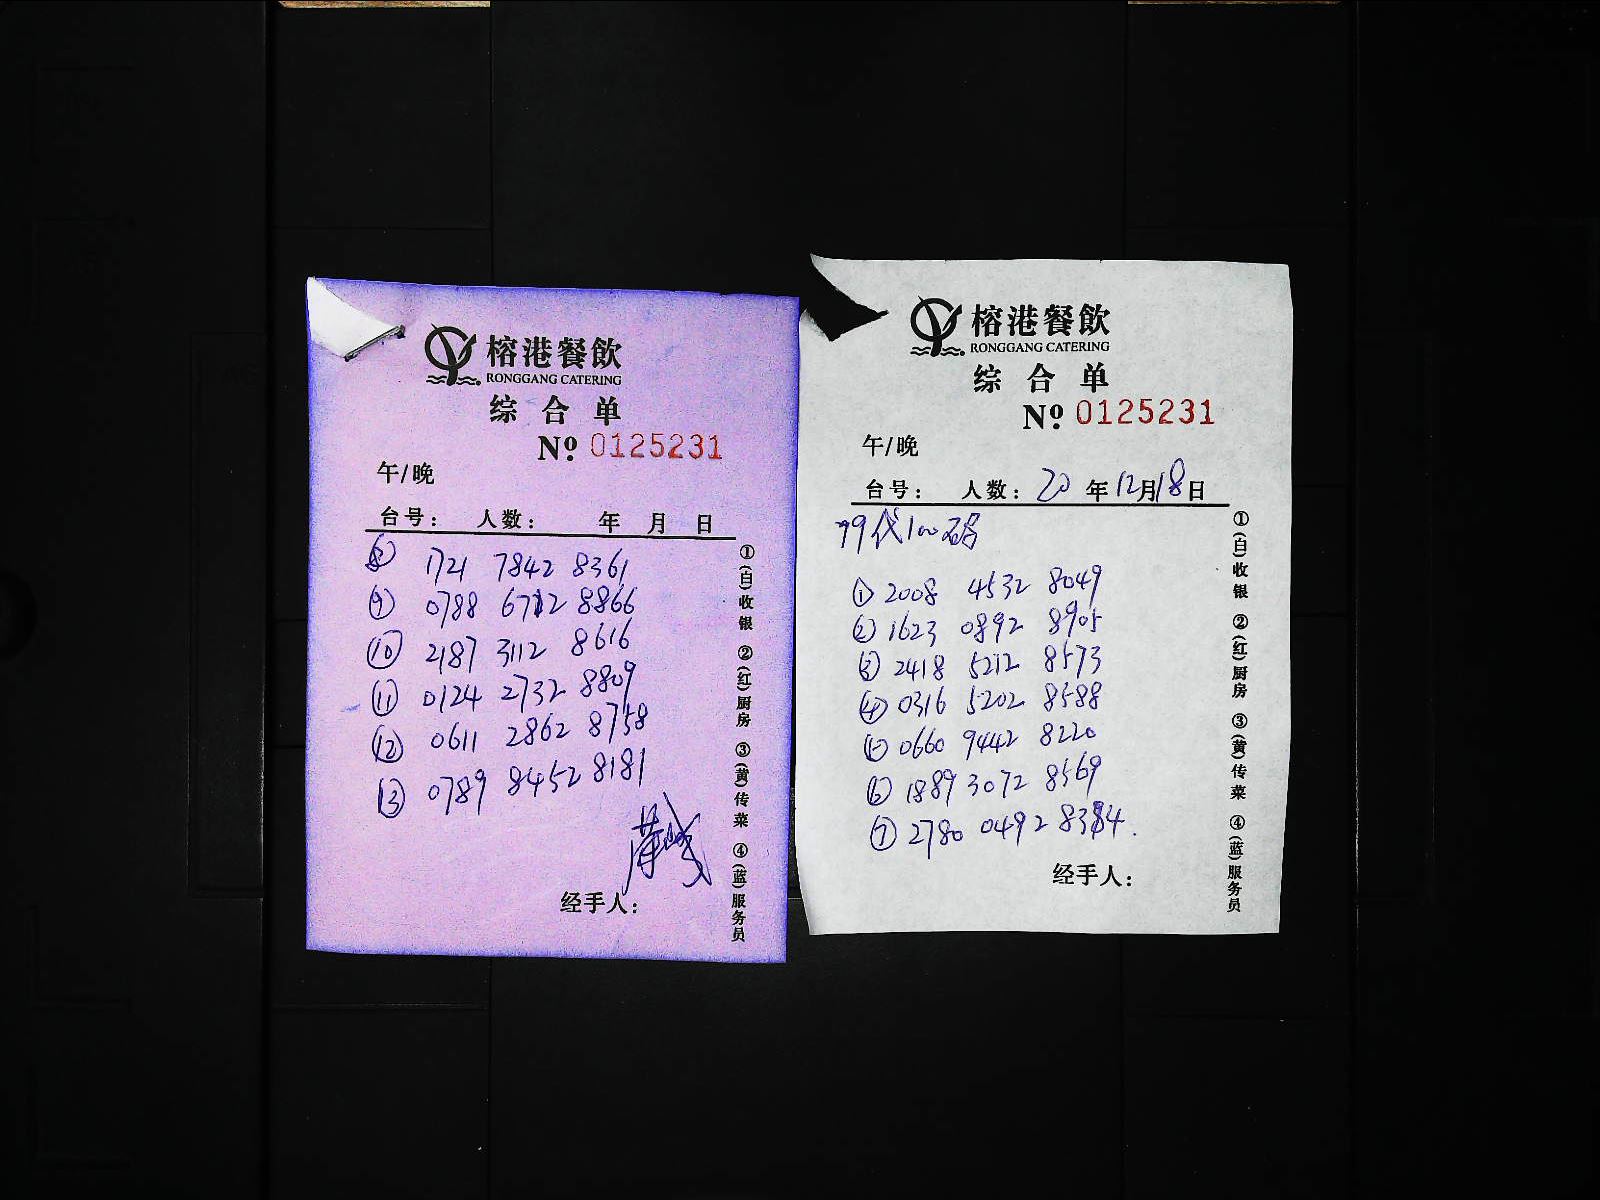 榕港餐飲
RONGGANG CATERING
综合单
№ 0125231
午/晚
台号： 人数： 年 月 日
⑧ 1721 7842 8361
⑨ 0788 6712 8866
⑩ 2187 3112 8616
⑪ 0124 2732 8809
⑫ 0611 2862 8758
⑬ 0789 8452 8181
经手人：
①(白)收银 ②(红)厨房 ③(黄)传菜 ④(蓝)服务员
榕港餐飲
RONGGANG CATERING
综合单
№ 0125231
午/晚
台号： 人数： 20 年 12月18日
79代100码
① 2008 4532 8049
② 1623 0892 8905
③ 2418 5212 8573
④ 0316 5202 8588
⑤ 0660 9442 8220
⑥ 1889 3072 8569
⑦ 2780 0492 8384.
经手人：
①(白)收银 ②(红)厨房 ③(黄)传菜 ④(蓝)服务员